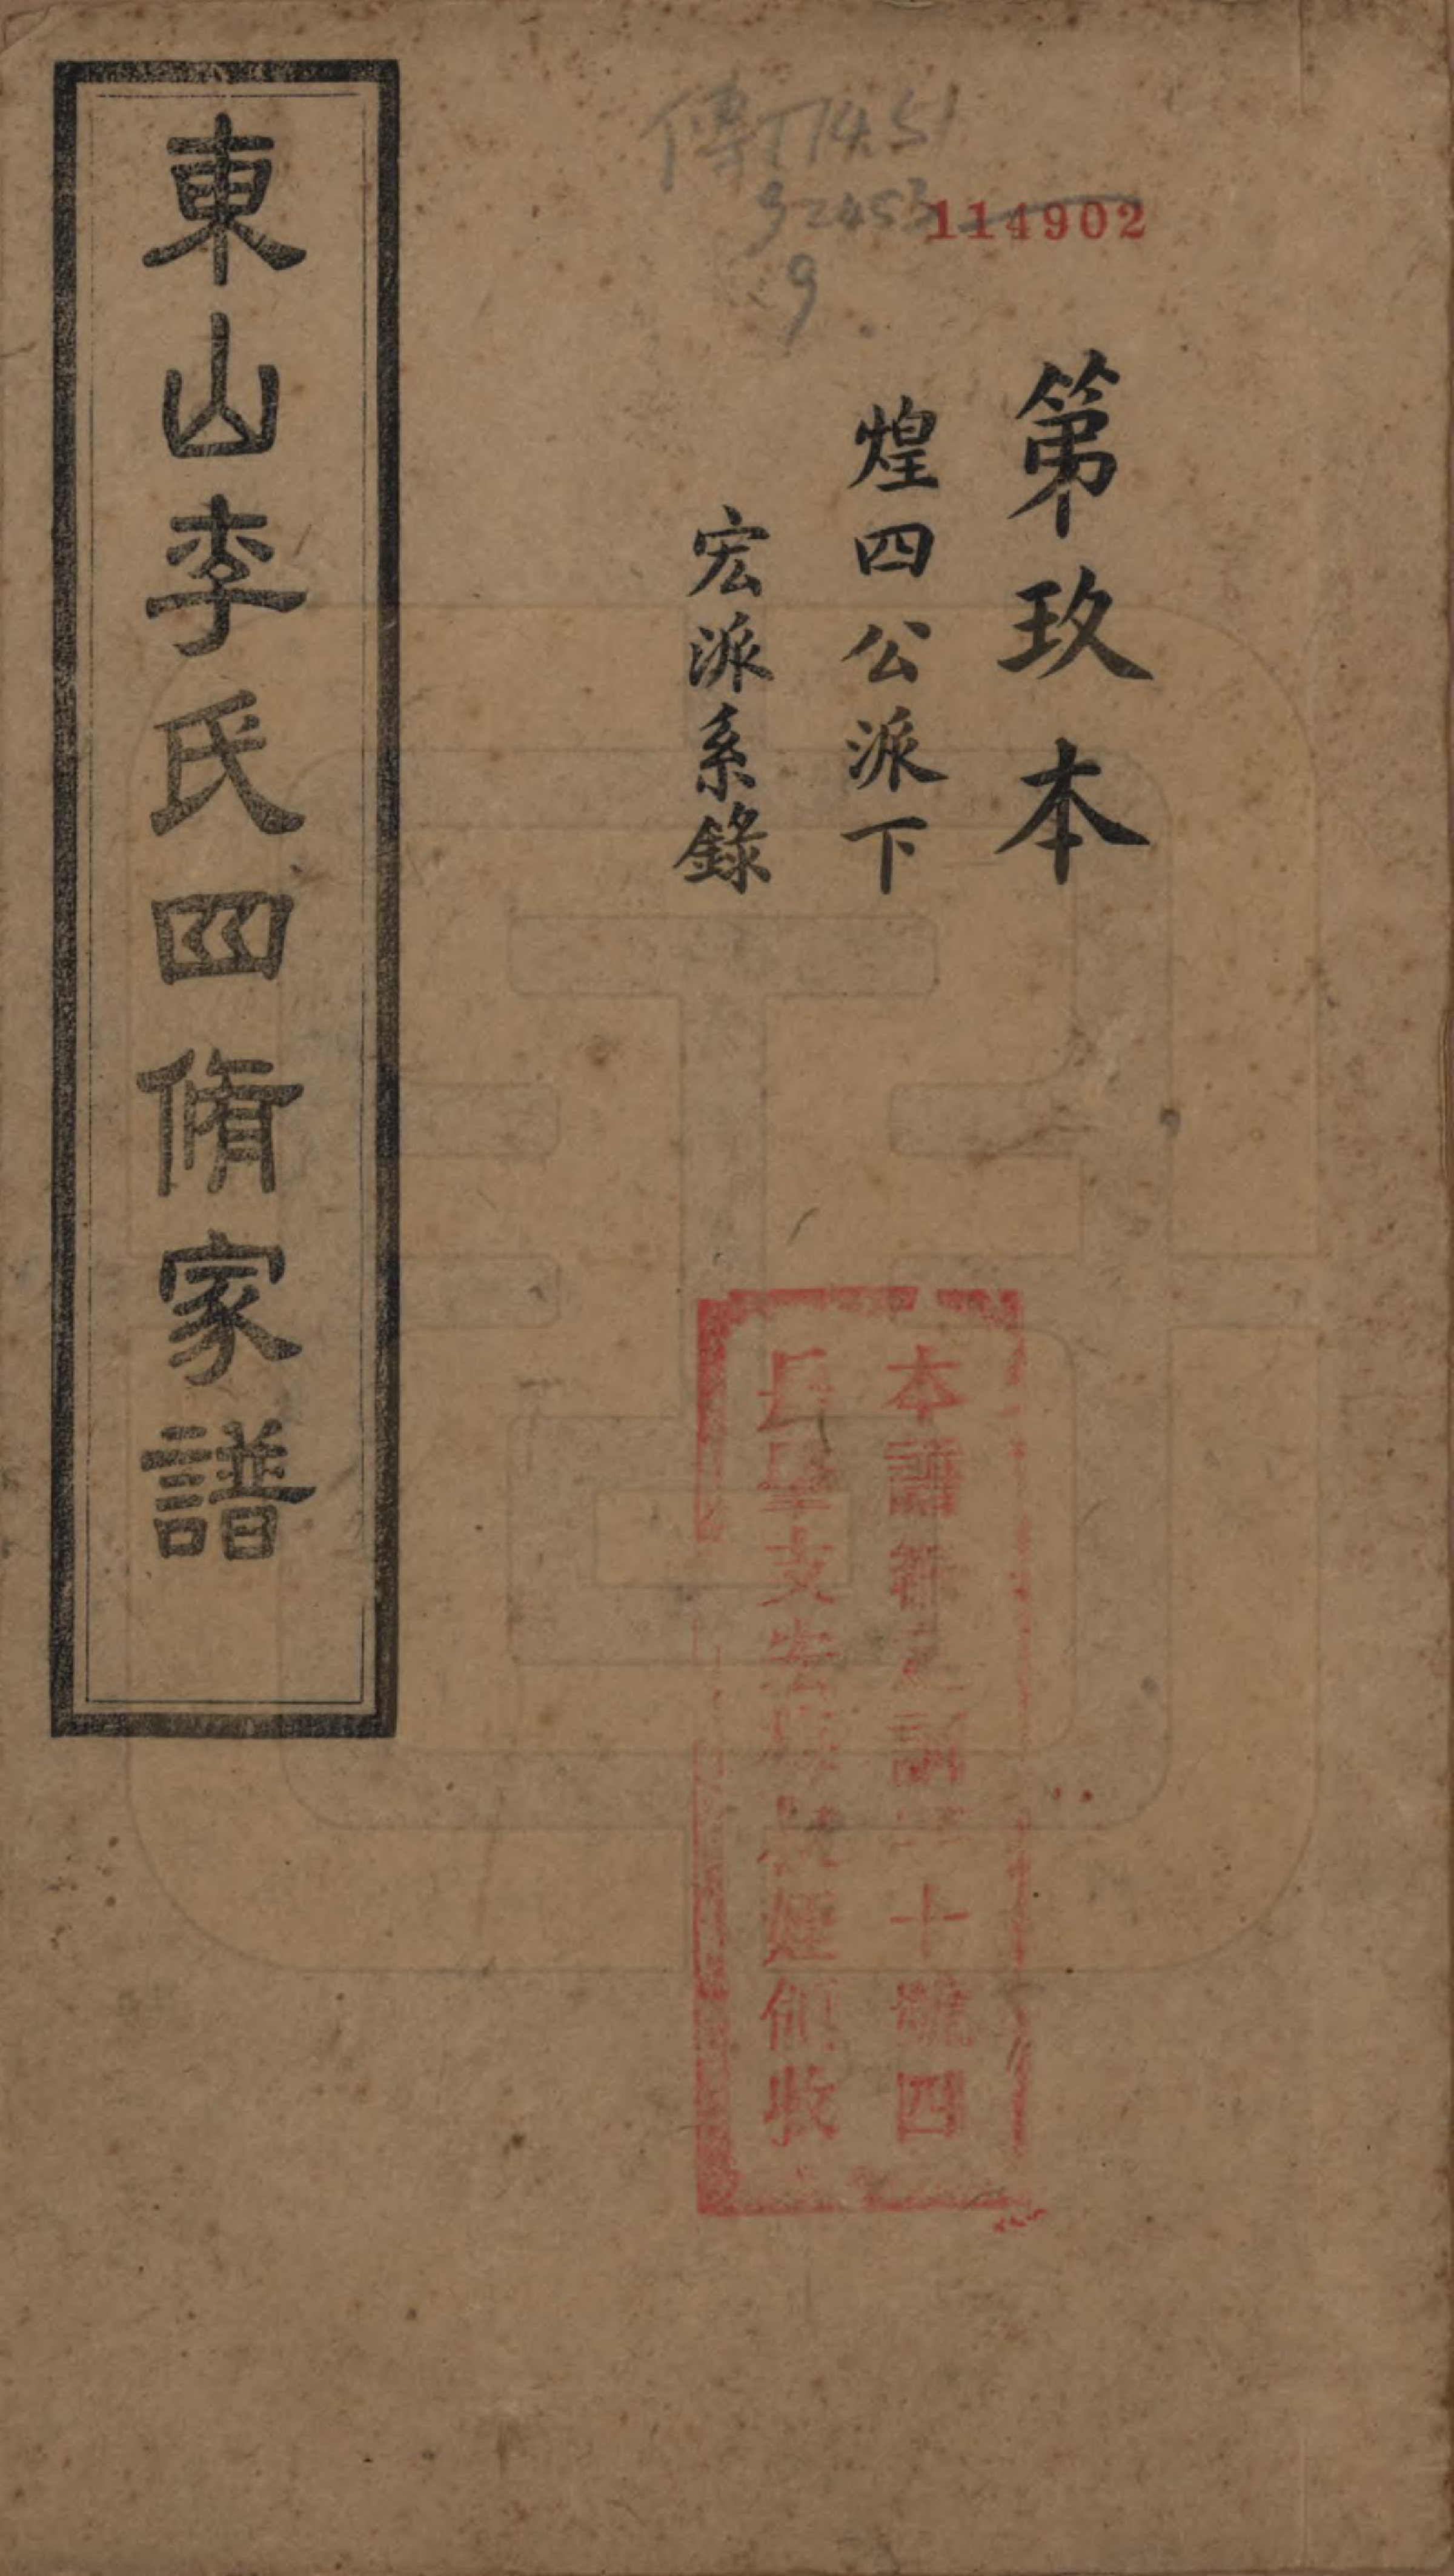 傳774.51
92453
9
114902
第玖本
煌四公派下
宏派系錄
東山李氏四脩家譜
本譜
十號四
支
領收